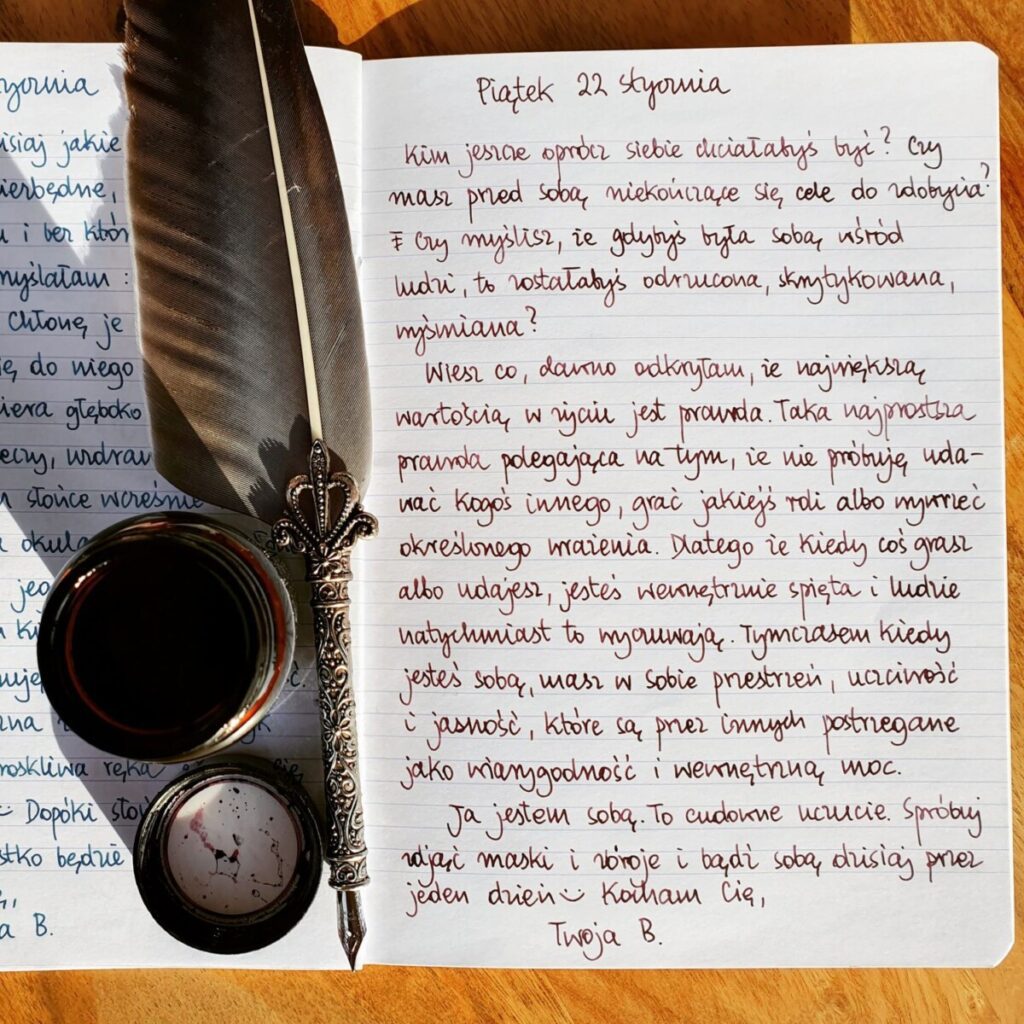 yornia
isiaj jakie
ierbędne,
u i bez któr
myślałam :
Chłonę je
ię do niego
iera głęboko
eczy, uzdraw
słońce wcześnie
okula
jeg
zna
roskliwa ręka
Dopóki słoń
stko będzie
a B.
Piątek 22 stycznia
Kim jeszcze oprócz siebie chciałabyś być? Czy
masz przed sobą niekończące się cele do zdobycia?
Czy myślisz, że gdybyś była sobą wśród
ludzi, to zostałabyś odrzucona, skrytykowana,
wyśmiana?
Wiesz co, dawno odkryłam, że największą
wartością w życiu jest prawda. Taka najprostsza
prawda polegająca na tym, że nie próbuję uda-
wać kogoś innego, grać jakiejś roli albo wywrzeć
określonego wrażenia. Dlatego że kiedy coś grasz
albo udajesz, jesteś wewnętrznie spięta i ludzie
natychmiast to wyczuwają. Tymczasem kiedy
jesteś sobą, masz w sobie przestrzeń, uczciwość
i jasność, które są przez innych postrzegane
jako wiarygodność i wewnętrzną moc.
Ja jestem sobą. To cudowne uczucie. Spróbuj
zdjąć maski i zbroje i bądź sobą dzisiaj przez
jeden dzień Kocham Cię,
Twoja B.